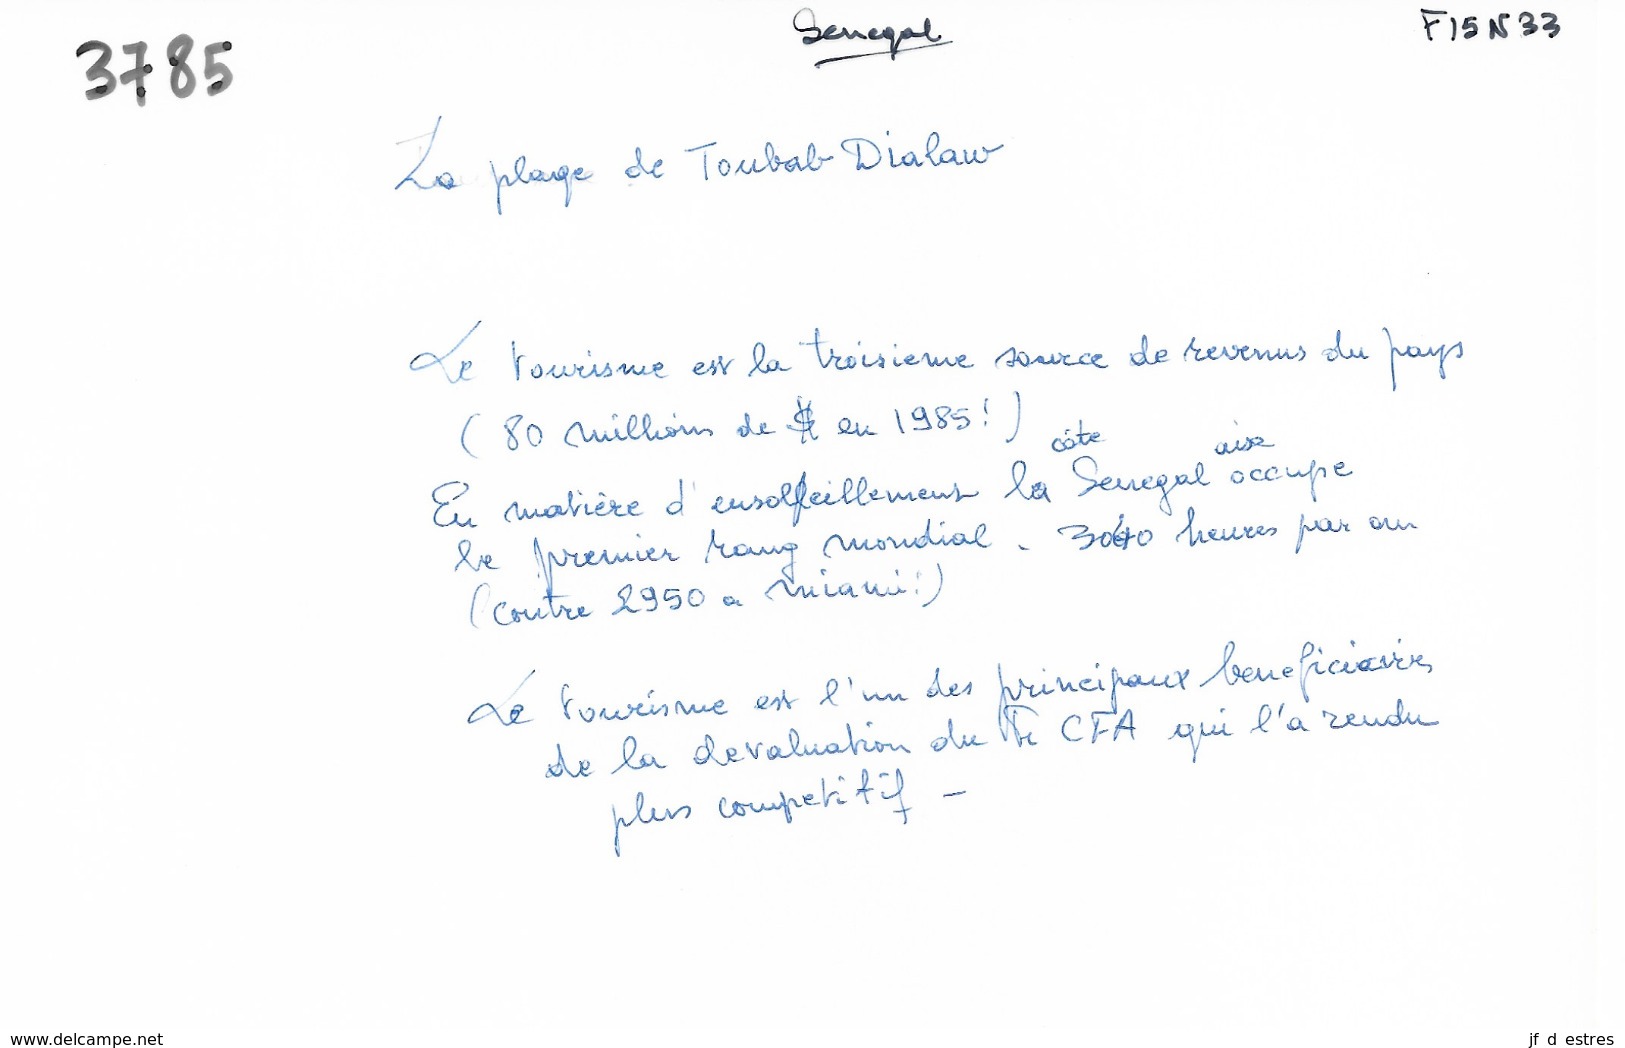 3785
Senegal
F15 N 33
La plage de Toubab Dialaw
Le tourisme est la troisieme source de revenus du pays
(80 millions de $ en 1985!)
côte aise
En matière d'ensolfeillement la Senegal occupe
le premier rang mondial. heures par an
(contre 2950 a Miami!)
Le tourisme est l'un des principaux beneficiaires
de la devaluation du Fr CFA qui l'a rendu
plus competitif -
www.delcampe.net
jf d estres